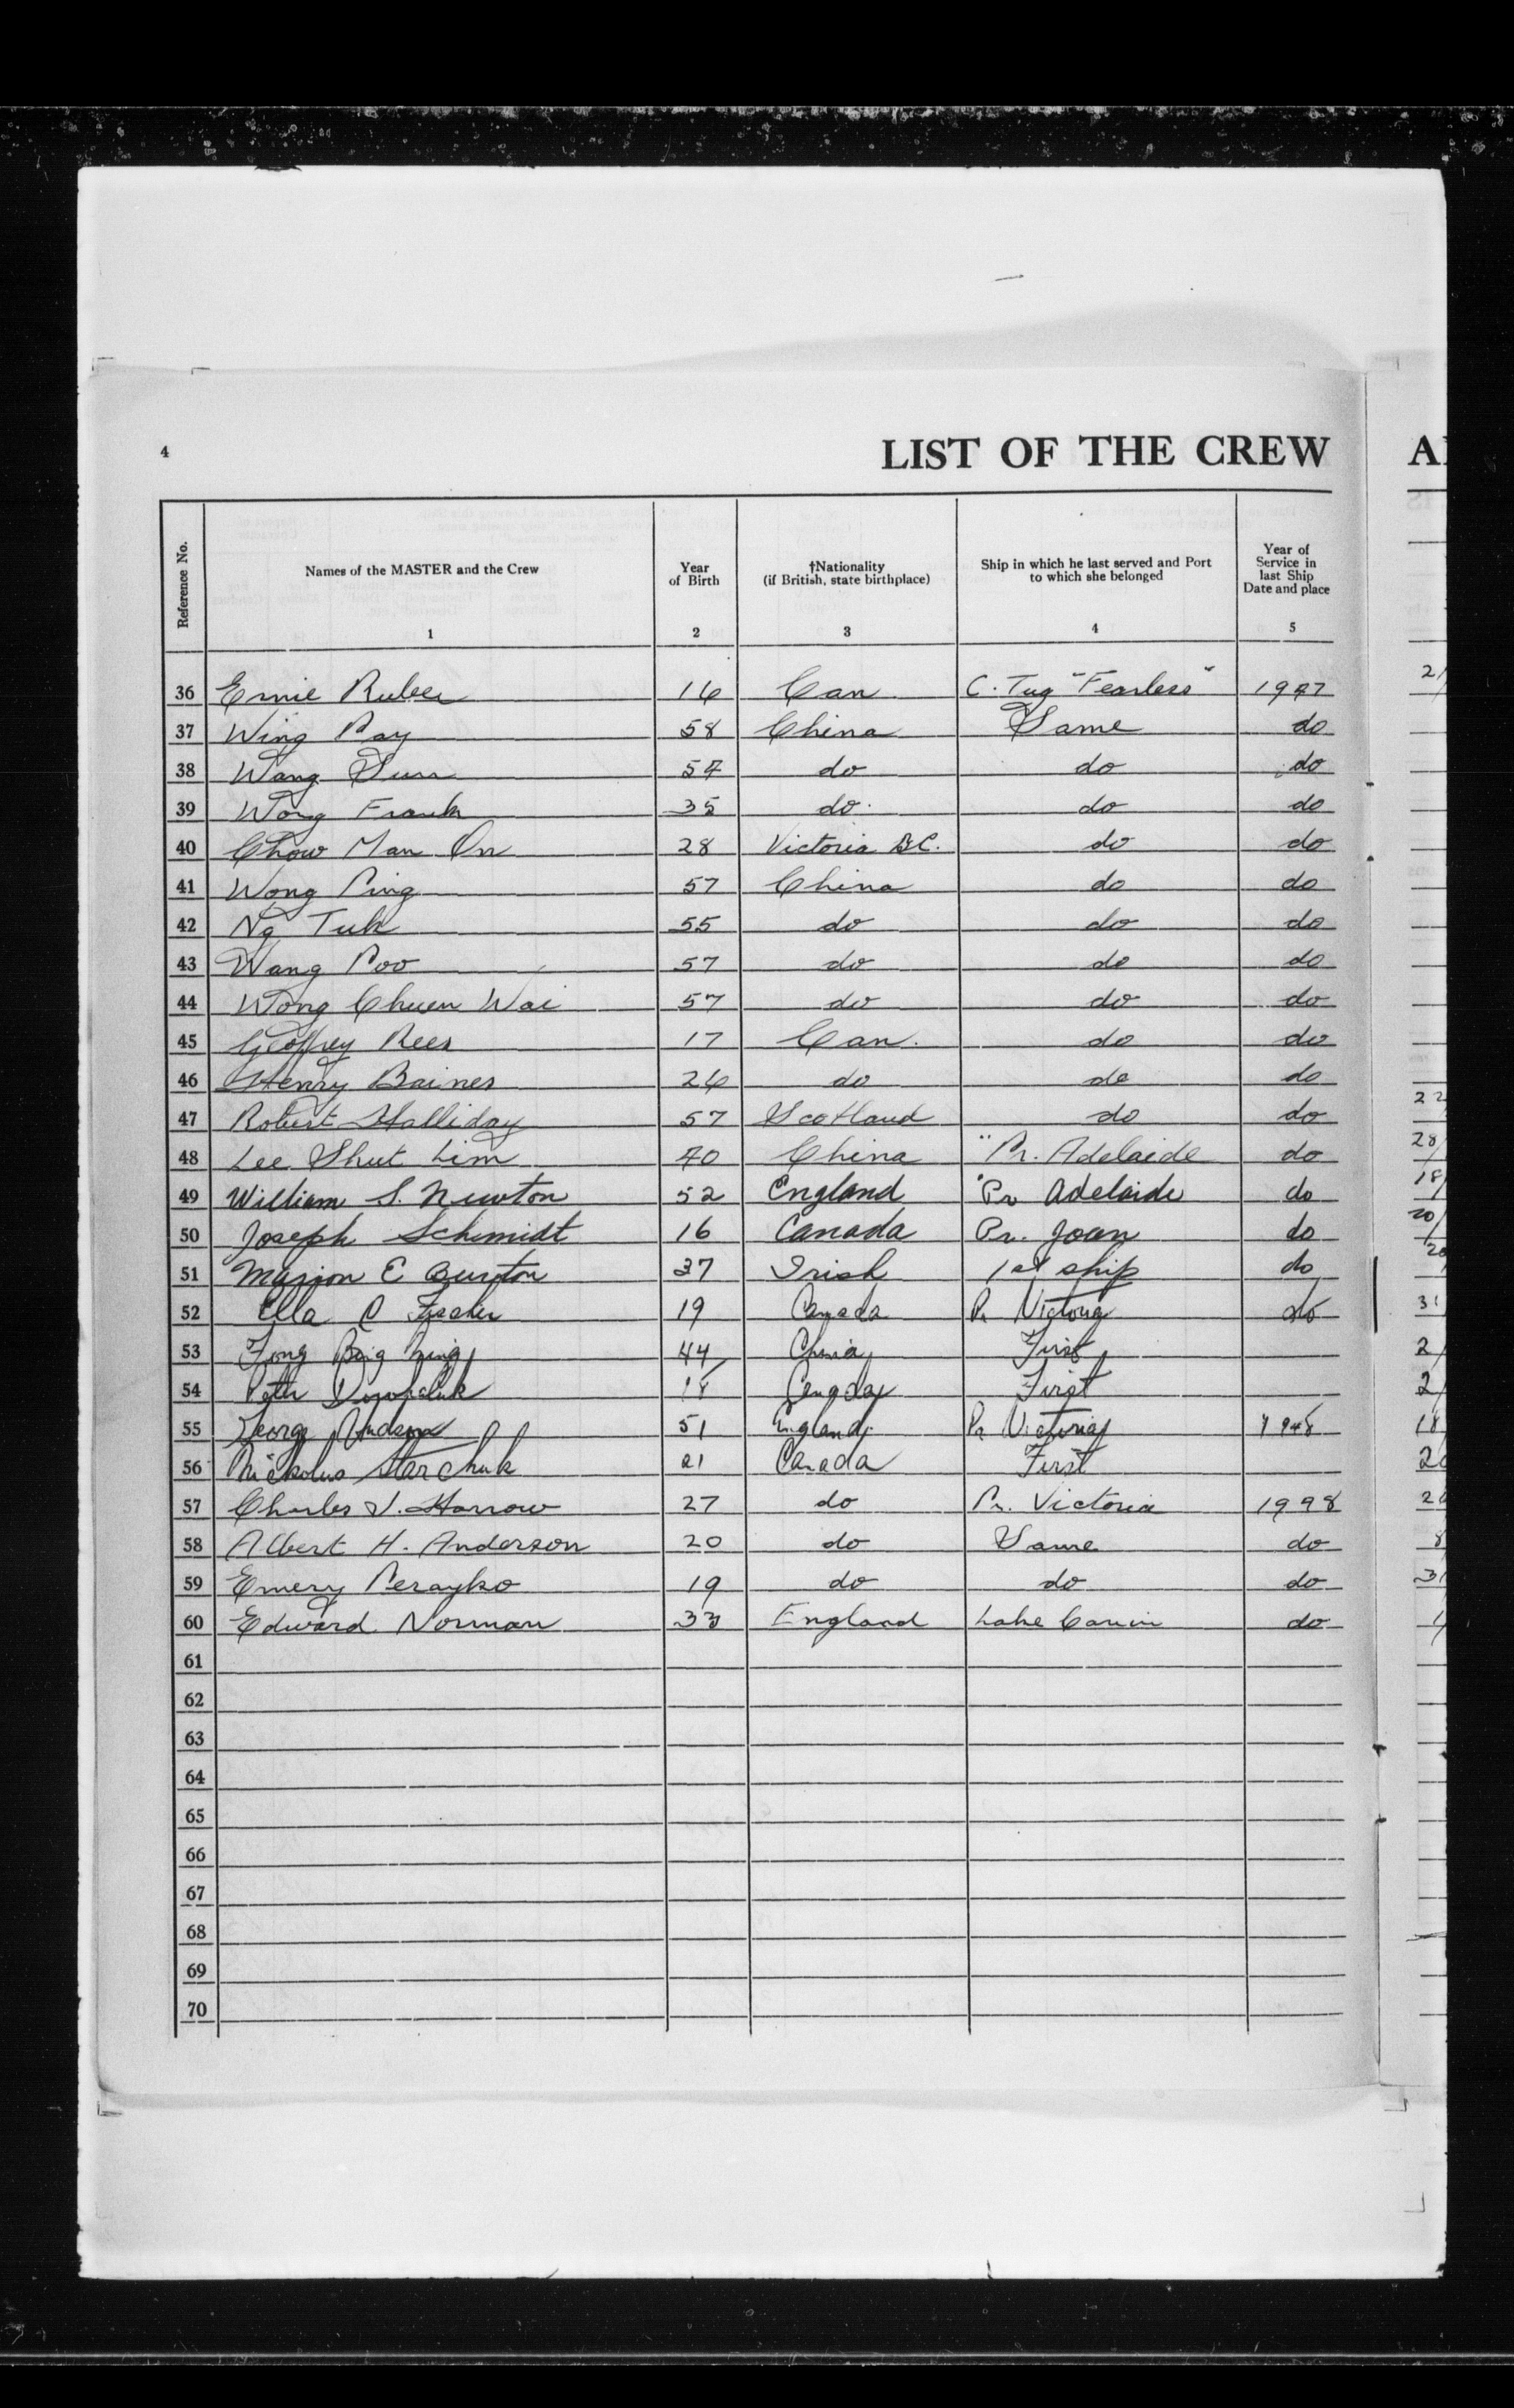 4
LIST OF THE CREW
A
Reference No.
Names of the MASTER and the Crew
1
Year of Birth
2
†Nationality (if British, state birthplace)
3
Ship in which he last served and Port to which she belonged
4
Year of Service in last Ship Date and place
5
36 Ernie 16 Can. C. Tug "Fearless" 1947
37 Wing Ray 58 China Same do
38 Wang Sun 54 do do do
39 Wong Frank 35 do do do
40 Chow Man On 28 Victoria B.C. do do
41 Wong Ping 57 China do do
42 Ng Tuk 55 do do do
43 Wang Poo 57 do do do
44 Wong Chuen Wai 57 do do do
45 Geoffrey Rees 17 Can. do do
46 Henry Baines 26 do do do
47 Robert Halliday 57 Scotland do do
48 Lee Shut Lim 40 China "Pr. Adelaide do
49 William S. Newton 52 England "Pr Adelaide do
50 Joseph Schmidt 16 Canada Pr. Joan do
51 Marion E Burton 37 Irish 1st ship do
52 Ella 19 Canada Pr Victoria do
53 Fong 44 China First
54 Peter 18 Canada First
55 George 51 England Pr Victoria 1948
56 Nickolus Starchuk 21 Canada First
57 Charles J. Harrow 27 do Pr. Victoria 1948
58 Albert H. Anderson 20 do Same do
59 Emery Perayko 19 do do do
60 Edward Norman 33 England Lake do
61
62
63
64
65
66
67
68
69
70